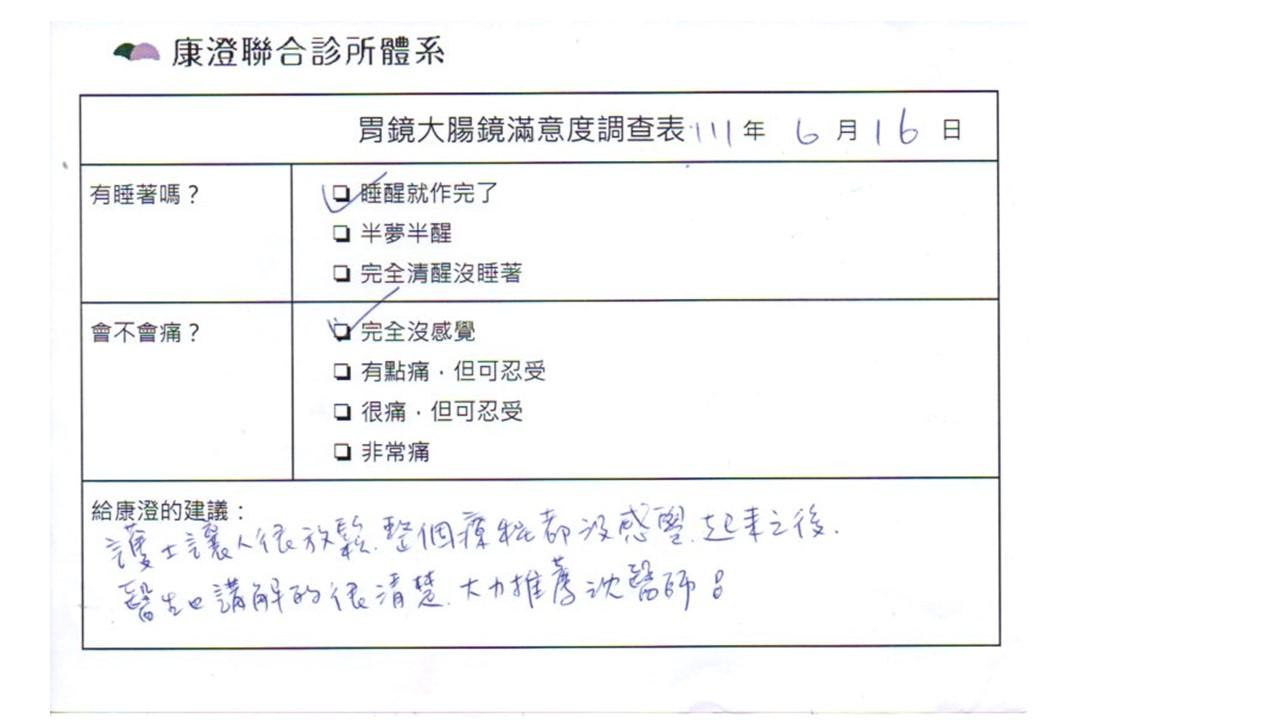 康澄聯合診所體系
胃鏡大腸鏡滿意度調查表 111年 6月16日
有睡著嗎？
❏ 睡醒就作完了
❏ 半夢半醒
❏ 完全清醒沒睡著
會不會痛？
❏ 完全沒感覺
❏ 有點痛，但可忍受
❏ 很痛，但可忍受
❏ 非常痛
給康澄的建議：
護士讓人很放鬆.整個療程都沒感覺.起來之後.
醫生也講解的很清楚.大力推薦沈醫師!!